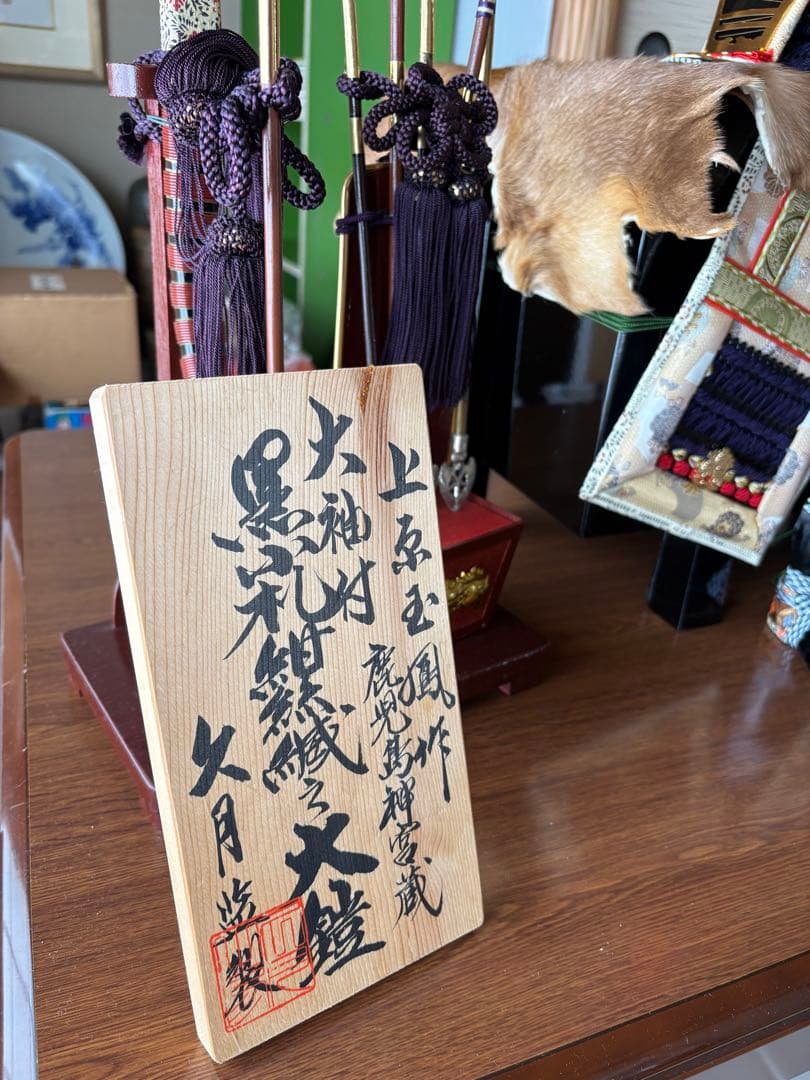 上原玉鳳作
鹿児島神宮蔵
大袖付
黒小札紺糸縅之大鎧
久月監製